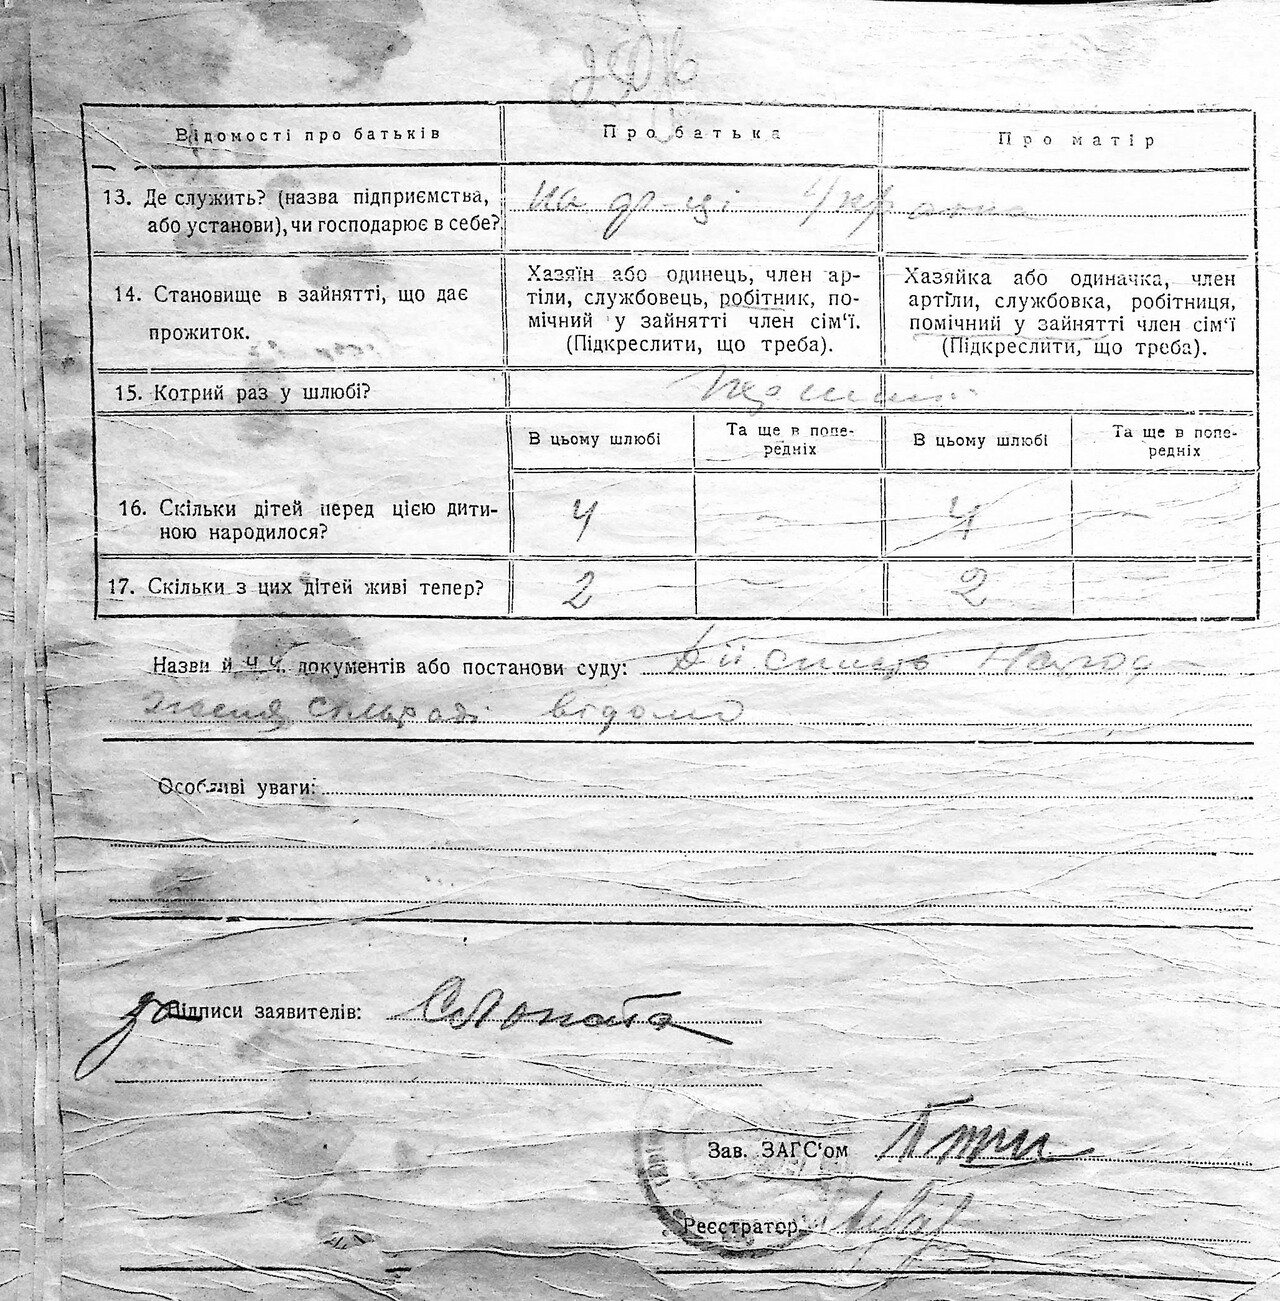 Відомості про батьків
Про батька
Про матір
13. Де служить? (назва підприємства,
або установи), чи господарює в себе?
На
14. Становище в зайнятті, що дає
прожиток.
Хазяїн або одинець, член ар-
тіли, службовець, робітник, по-
мічний у зайнятті член сім'ї.
(Підкреслити, що треба).
Хазяйка або одиначка, член
артіли, службовка, робітниця,
помічний у зайнятті член сім'ї
(Підкреслити, що треба).
15. Котрий раз у шлюбі?
В цьому шлюбі
Та ще в попе-
редніх
В цьому шлюбі
Та ще в попе-
редніх
16. Скільки дітей перед цією дити-
ною народилося?
4 — 4 —
17. Скільки з цих дітей живі тепер?
2 — 2 —
Назви й Ч.Ч. документів або постанови суду:
відомо
Особливі уваги:
за Підписи заявителів:
Зав. ЗАГС'ом
Реєстратор